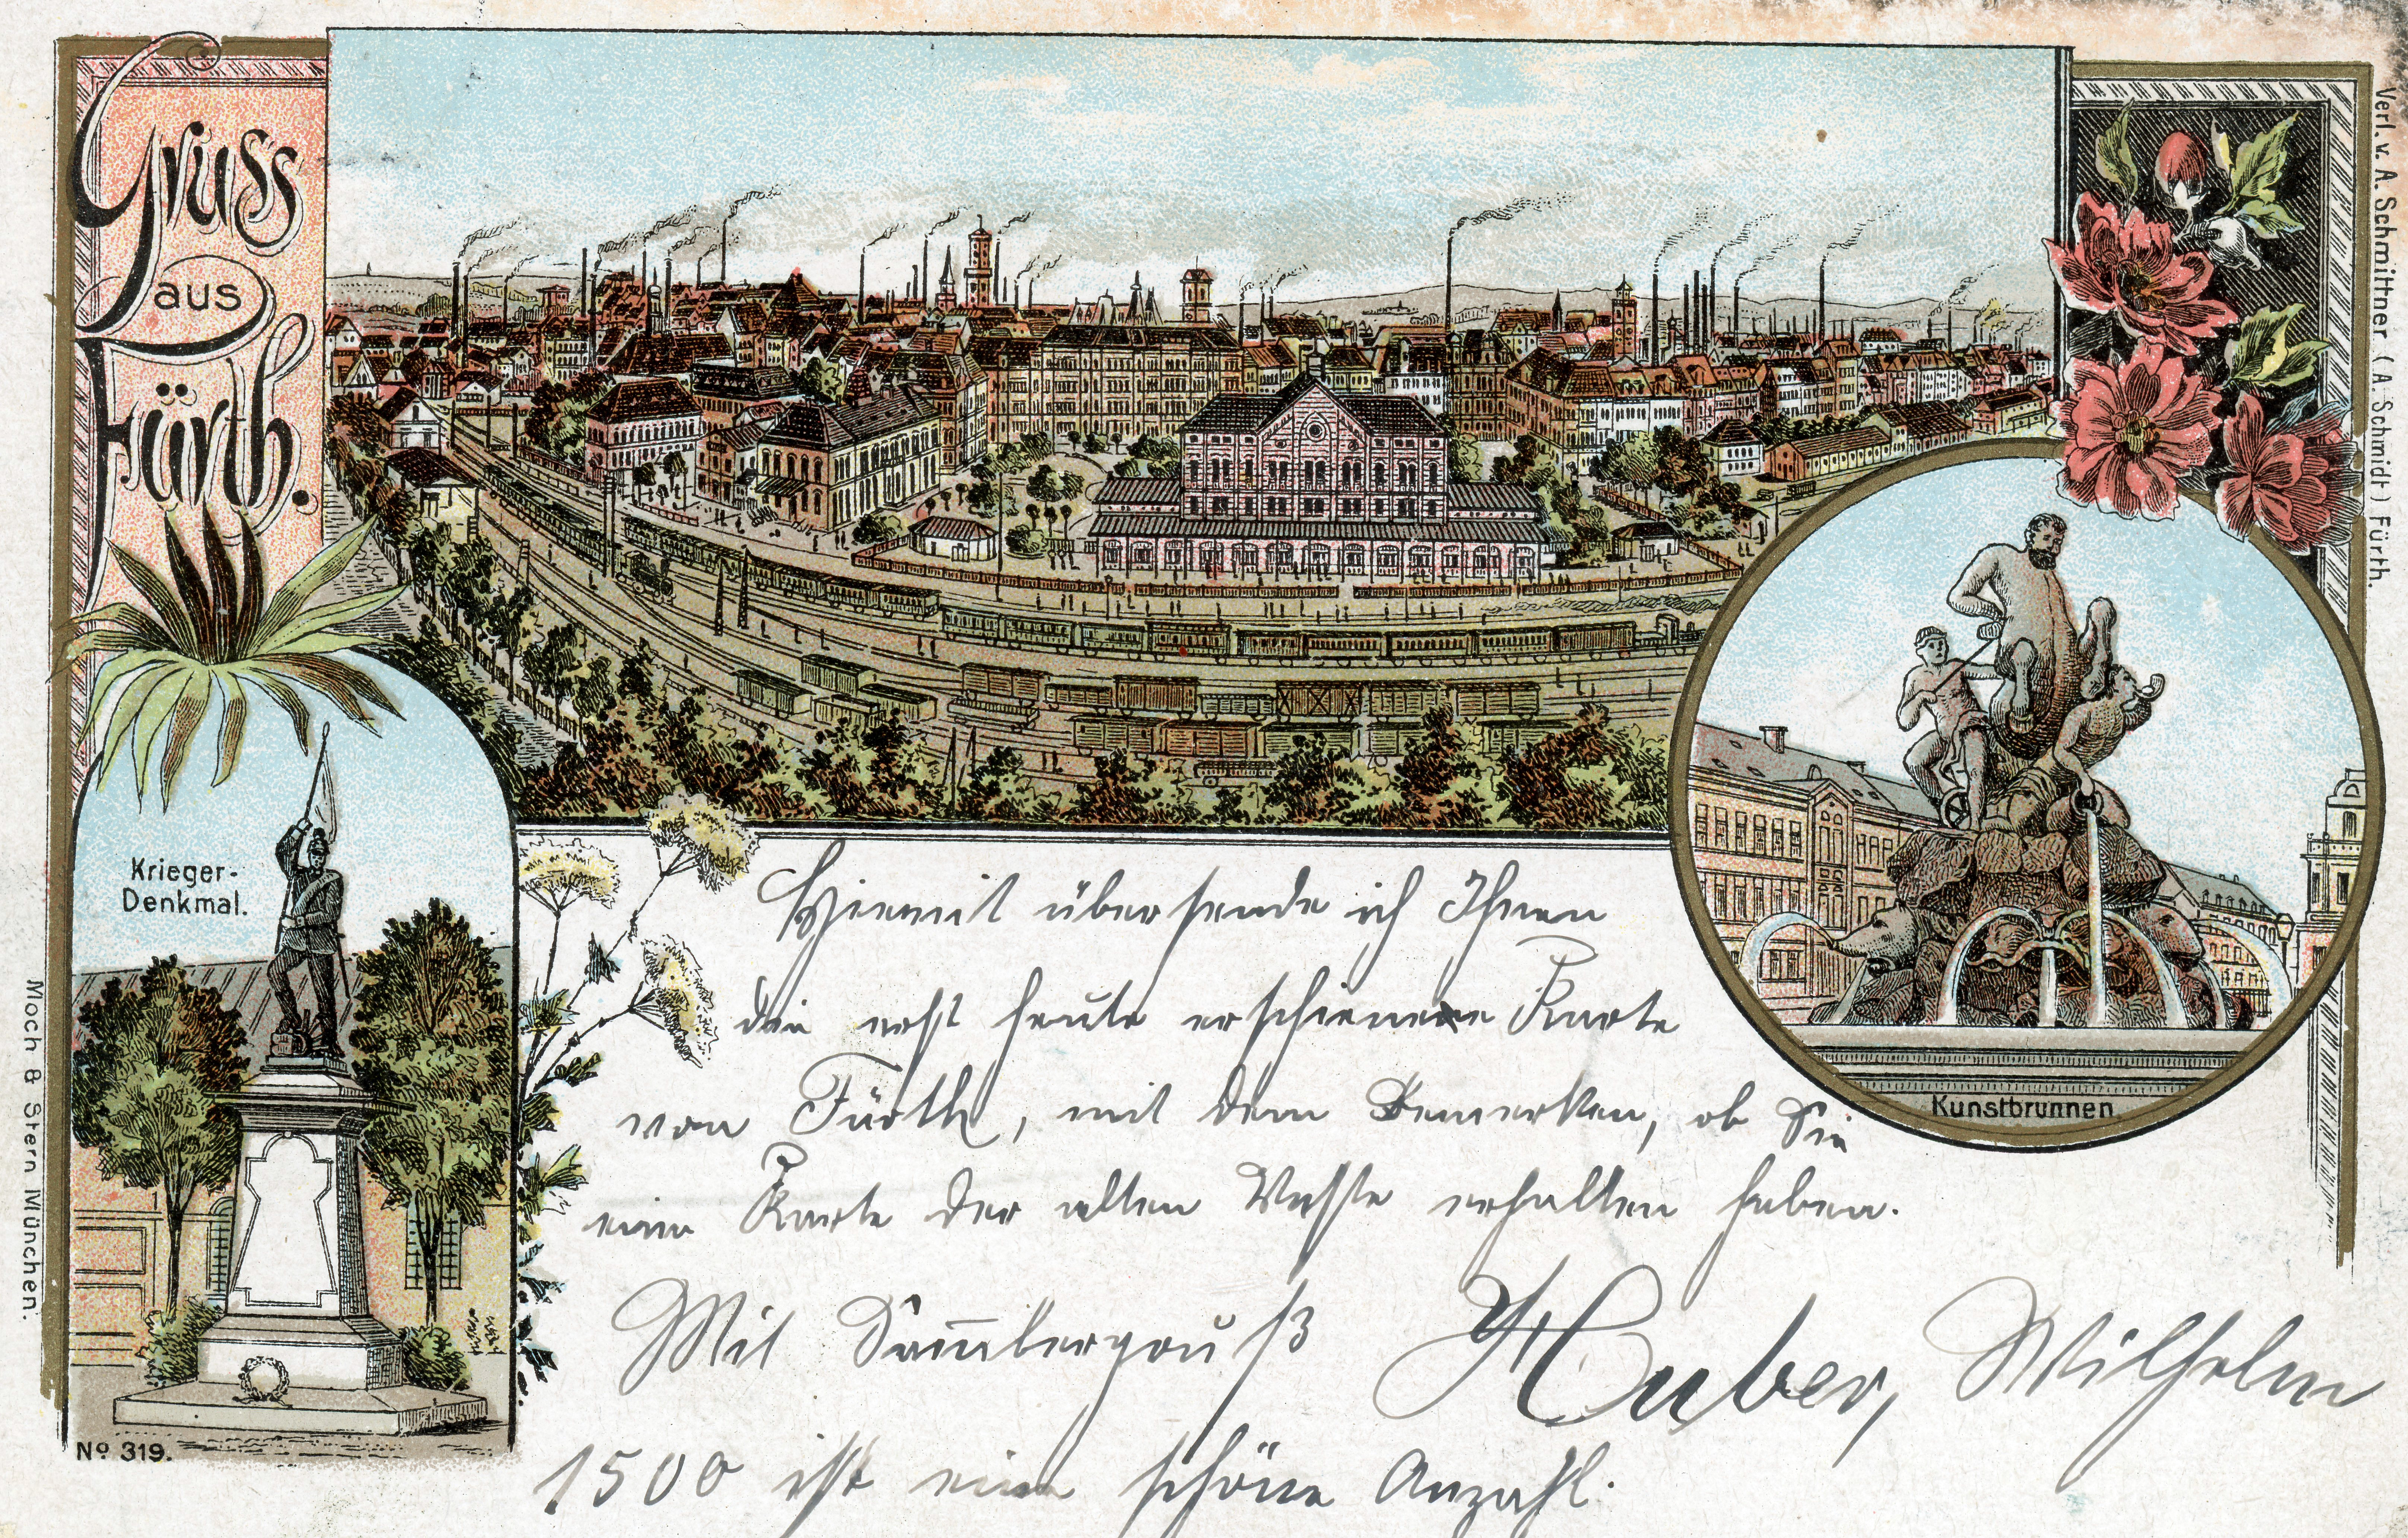 Gruss
aus
Fürth.
Verl. v. A. Schmittner (A. Schmidt) Fürth.
Krieger-
Denkmal.
Kunstbrunnen
Moch & Stern München.
No 319.
Hiermit übersende ich Ihnen
die erst heute erschienene Karte
von Fürth, mit dem Bemerken, ob Sie
eine Karte der alten Veste erhalten haben.
Mit Sam̅lergruß Huber, Wilhelm
1500 ist eine schöne Anzahl.